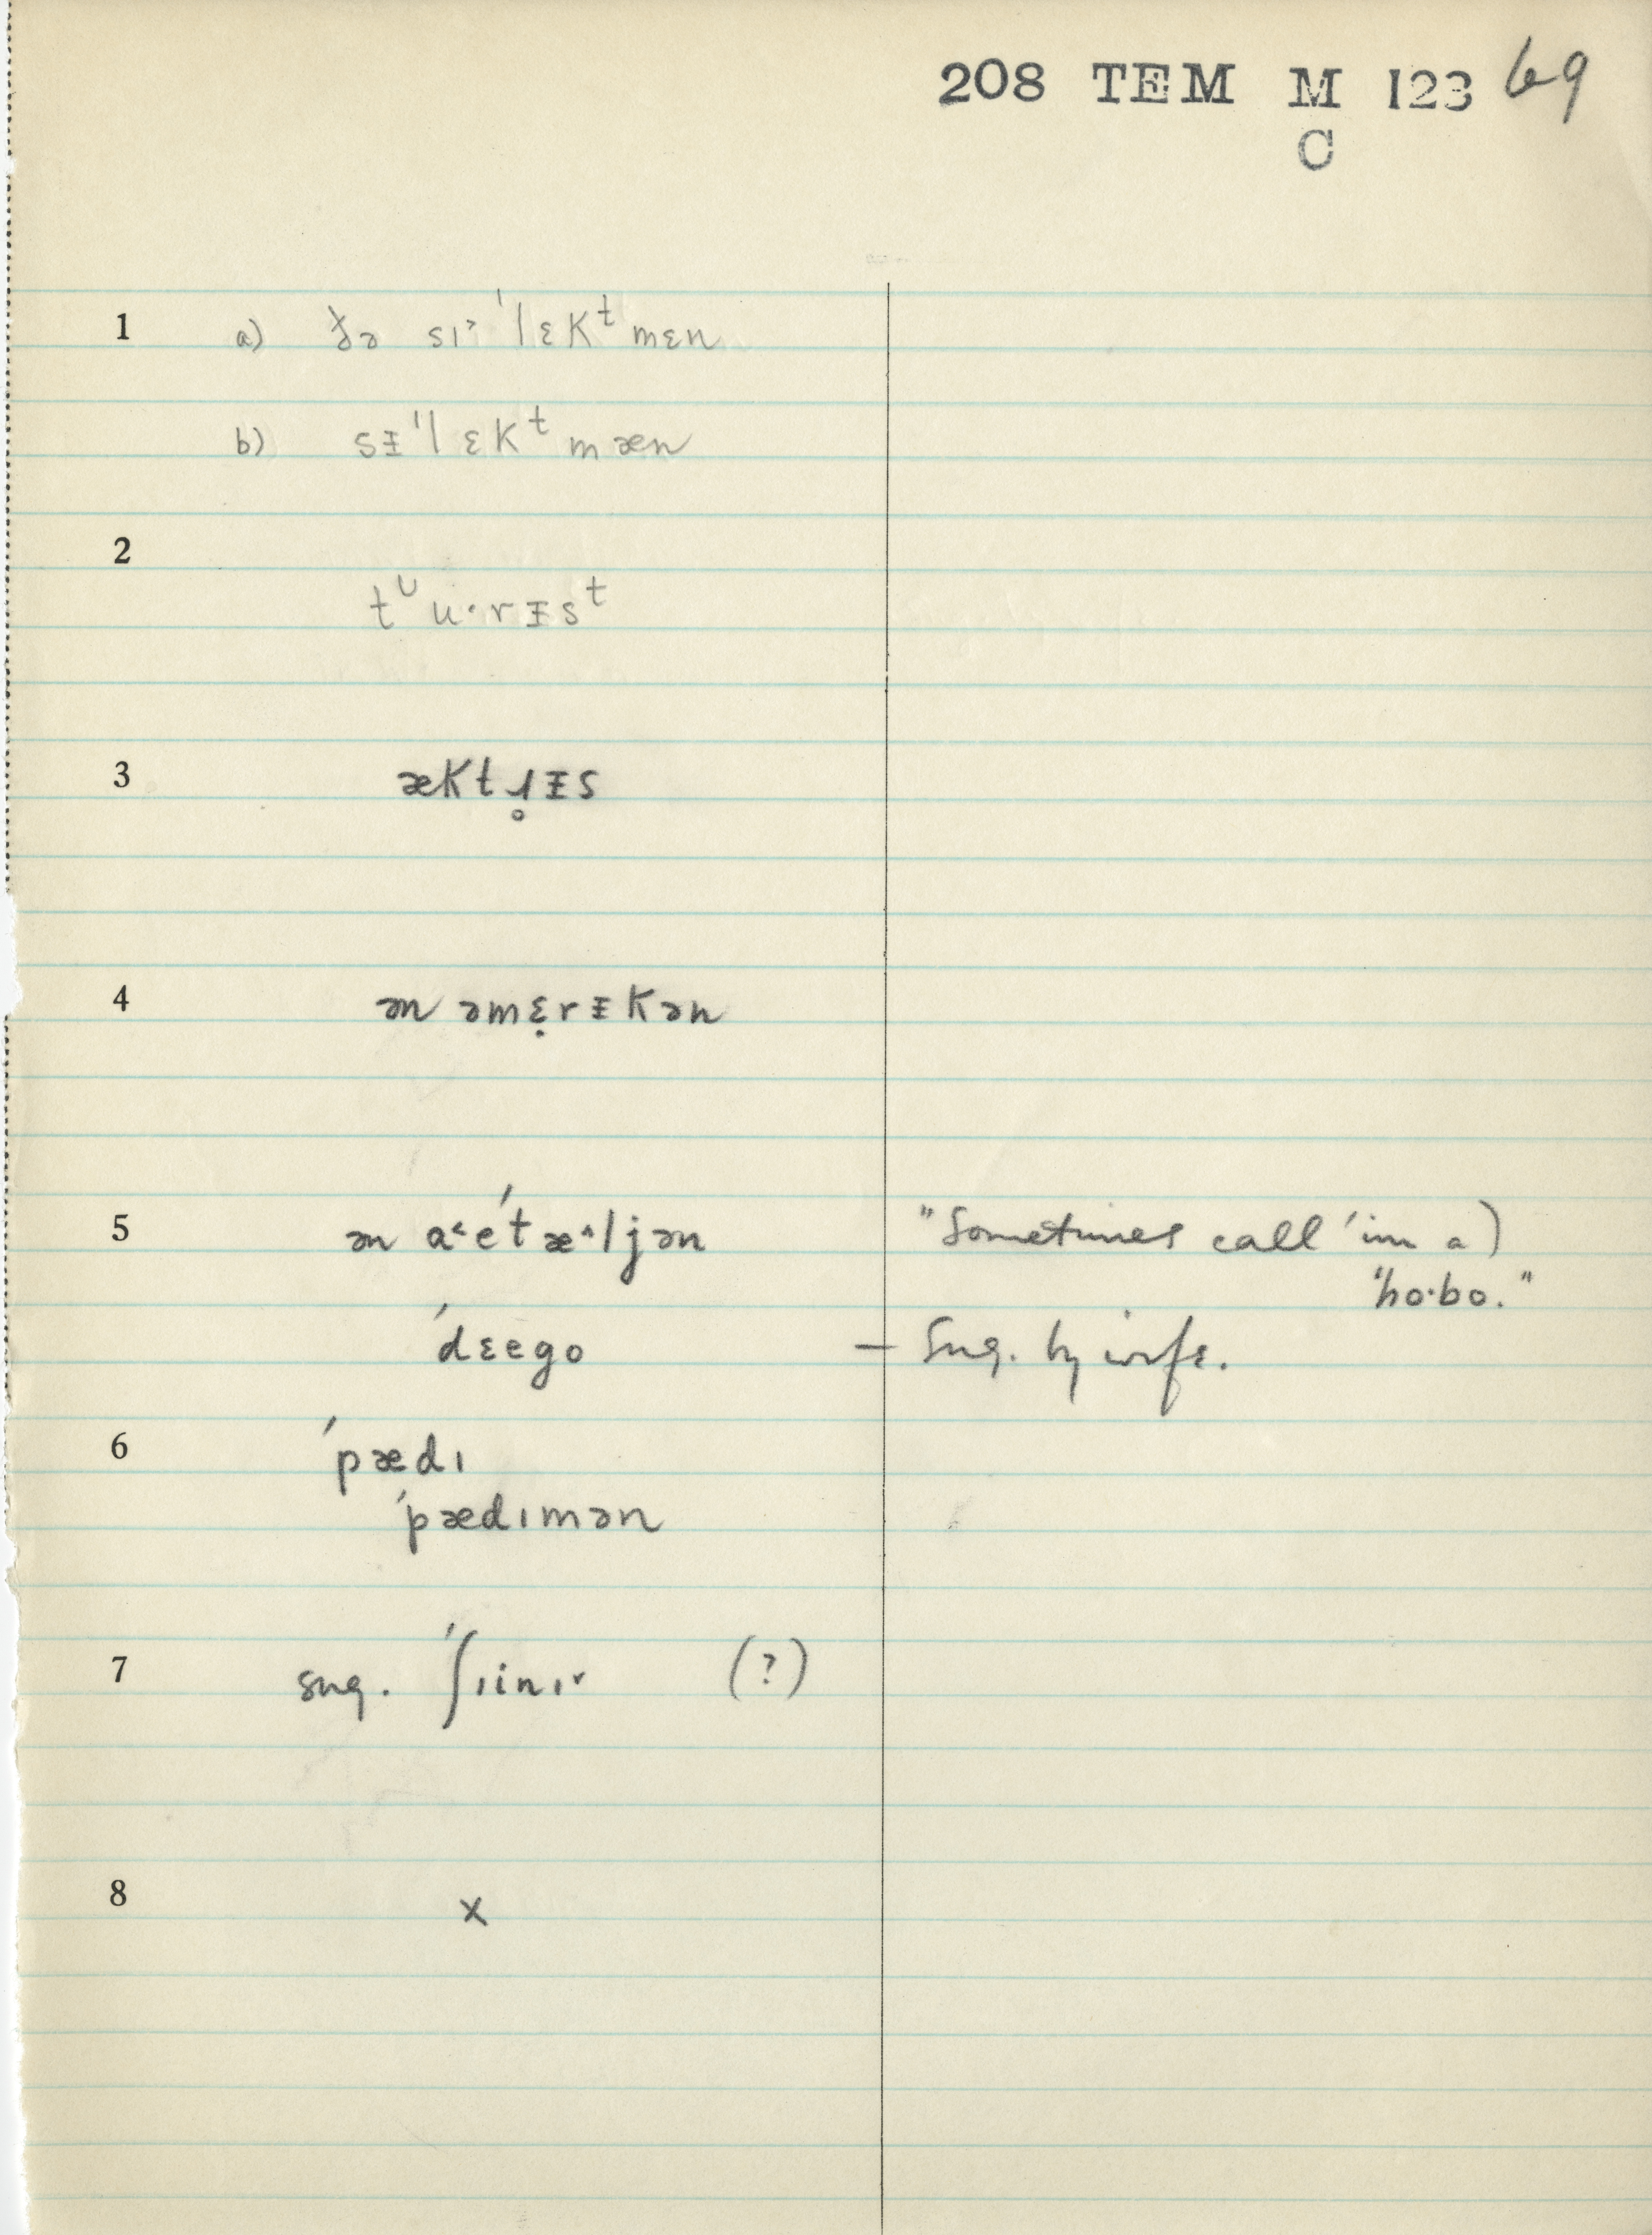 208 TEM M 123 69
C
1 a) ðə sɪ˃ˈlɛkᵗmɛn
b) sᵻˈlɛkᵗmæn
2
tᶸu·rᵻsᵗ
3 æktɹ̥ᵻs
4 ən əmɛ̣rᵻkən
5 ən a˂eˈtæ˄ljən "Sometimes call 'im a
ˈho·bo."
ˈdɛego — Sug. by wife.
6 ˈpædɪ
ˈpædɪmən
7 sug. ˈʃɪinɪ˅ (?)
8 x